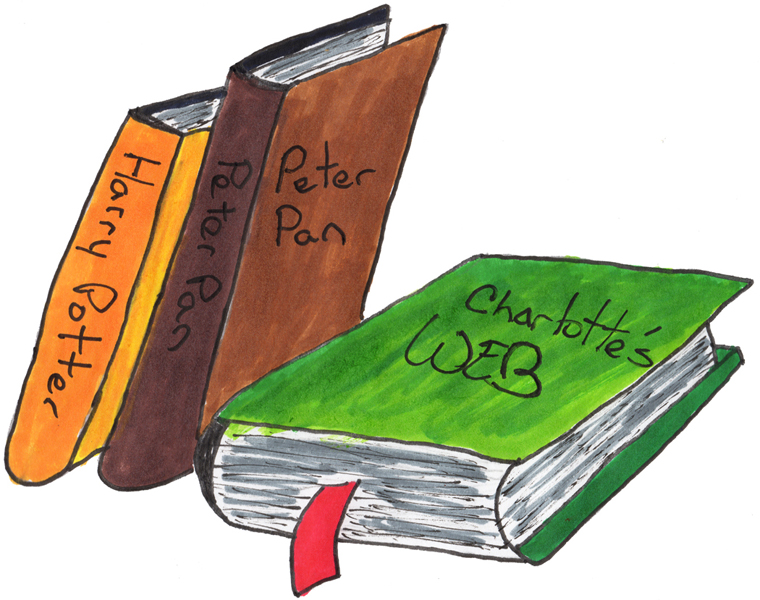 Harry Potter
Peter Pan
Peter
Pan
Charlotte's
WEB